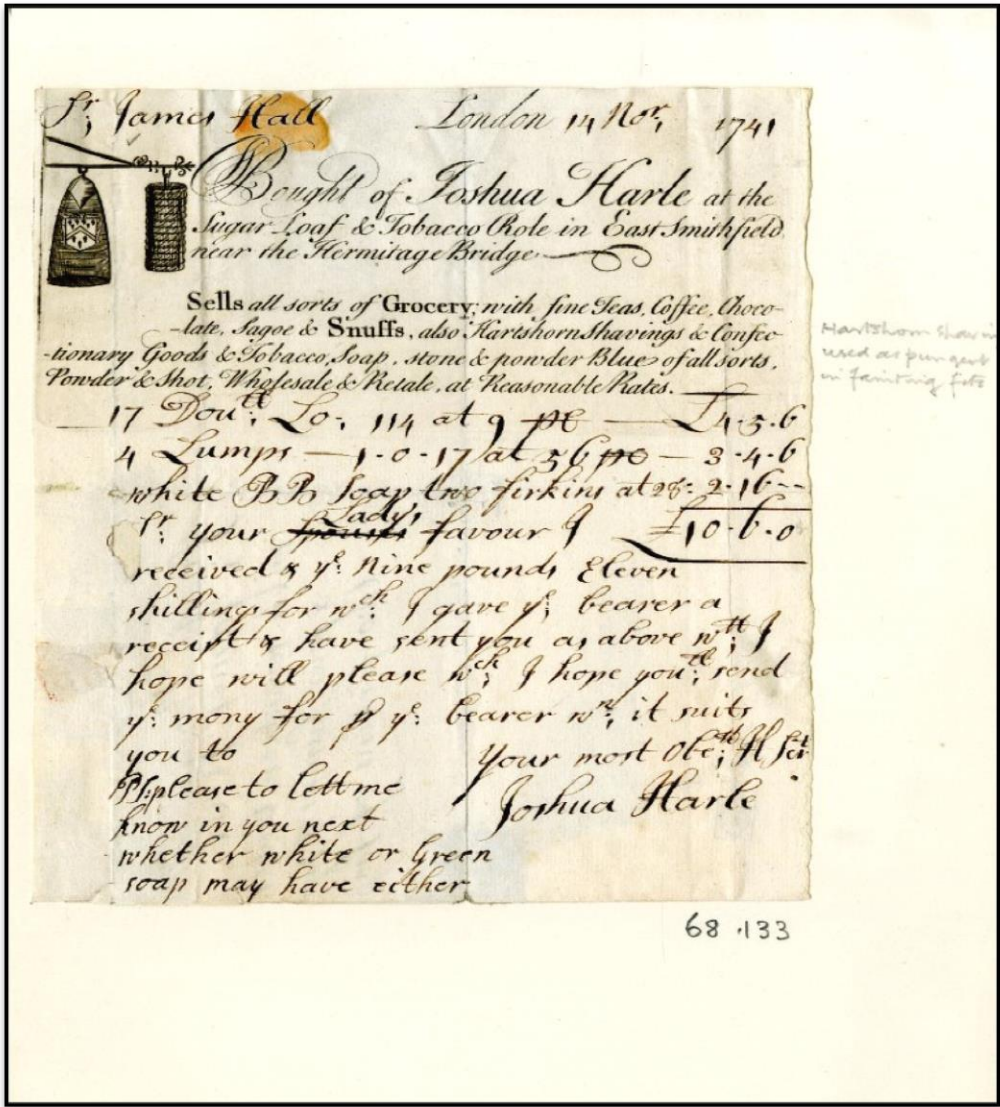 Sr; James Hall London 14 Nor; 1741
Bought of Joshua Harle at the
Sugar Loaf & Tobacco Role in East Smithfield
near the Hermitage Bridge
Sells all sorts of Grocery; with fine Teas, Coffee, Choco-
-late, Sagoe & Snuffs, also Hartshorn Shavings & Confec
-tionary Goods & Tobacco, Soap, stone & powder Blue of all sorts,
Powder & Shot, Wholesale & Retale, at Reasonable Rates.
17 Douˡᵉ; Lo; 114 at 9 pe — £4·5·6
4 Lumps — 1-0-17 at 56 pe — 3-4-6
white BB Soap two firkins at 28: 2-16--
Lady's
Sr; your favour I £10-6-0
received & ye: Nine pounds Eleven
shillings for wch; I gave ye; bearer a
receipt & have sent you as above wtt; I
hope will please wch; I hope youll; send
ye: mony for p ye: bearer wn; it suits
you to Your most Obedt; H Sert
PS: please to lett me Joshua Harle
know in you next
whether white or Green
soap may have either
68.133
Hartshorn Shavin
used as pungent
in fainting fits